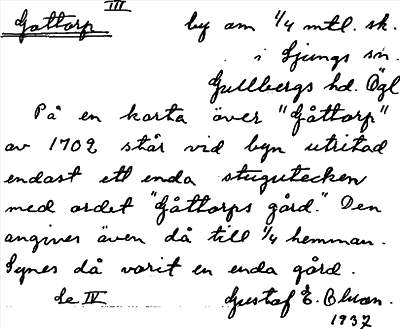 Gottorp III by om 1/4 mtl. sk.
i Ljungs sn.
Gullbergs hd. Ögl
På en karta över "Gåttorp"
av 1702 står vid byn utritad
endast ett enda stugutecken
med ordet "Gåttorps gård." Den
angives även då till 1/4 hemman.
Synes då varit en enda gård.
Se IV Gustaf E. Olson.
1937